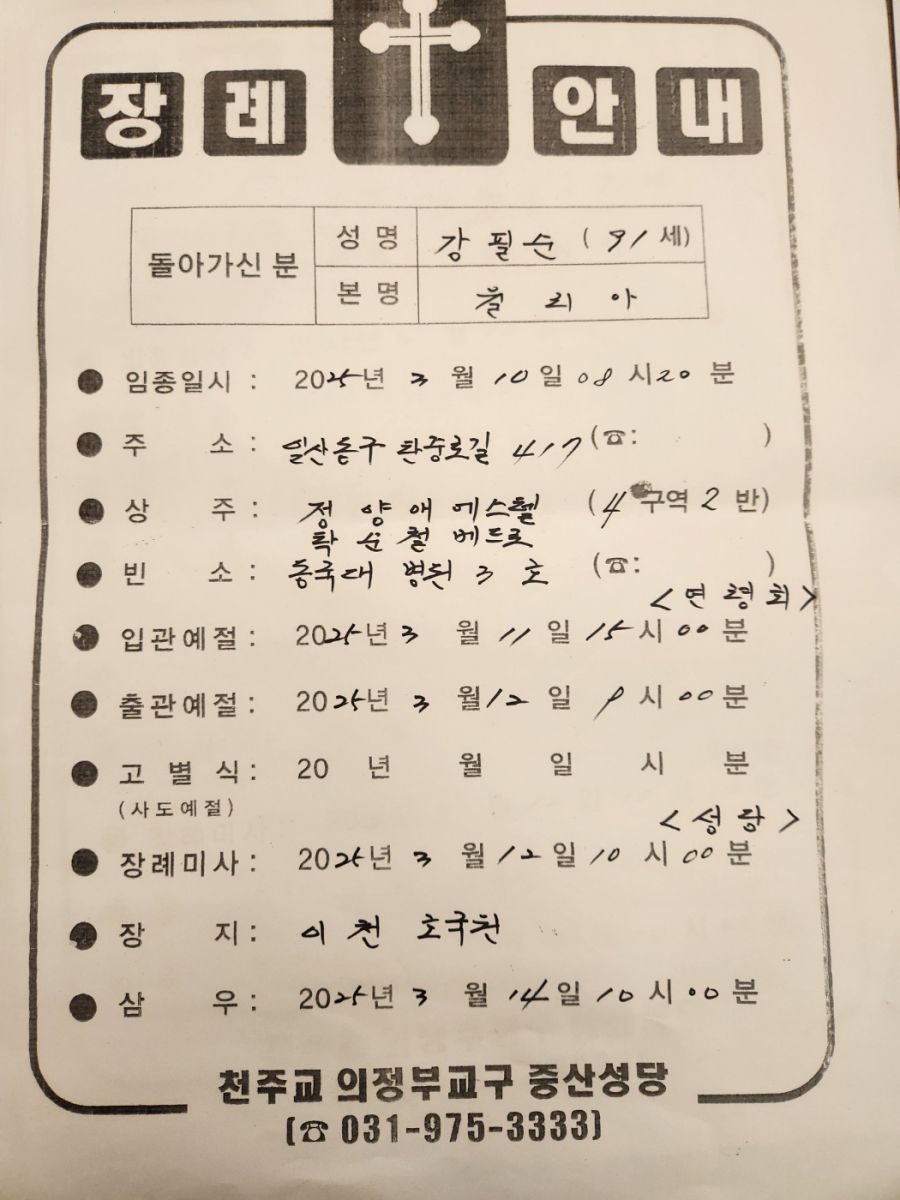 장례 안내
돌아가신 분
성명 강필순 (91세)
본명 율리아
● 임종일시 : 2025년 3월 10일 08시 20분
● 주 소 : 일산동구 탄중로길 417 (☎: )
● 상 주 : 정양애 에스텔 (4구역 2반)
탁순철 베드로
● 빈 소 : 동국대 병원 3호 (☎: )
<연령회>
● 입관예절 : 2025년 3월 11일 15시 00분
● 출관예절 : 2025년 3월 12일 9시 00분
● 고별식 : 20 년 월 일 시 분
(사도예절)
<성당>
● 장례미사 : 2025년 3월 12일 10시 00분
● 장 지 : 이천 호국원
● 삼 우 : 2025년 3월 14일 10시 00분
천주교 의정부교구 중산성당
(☎ 031-975-3333)